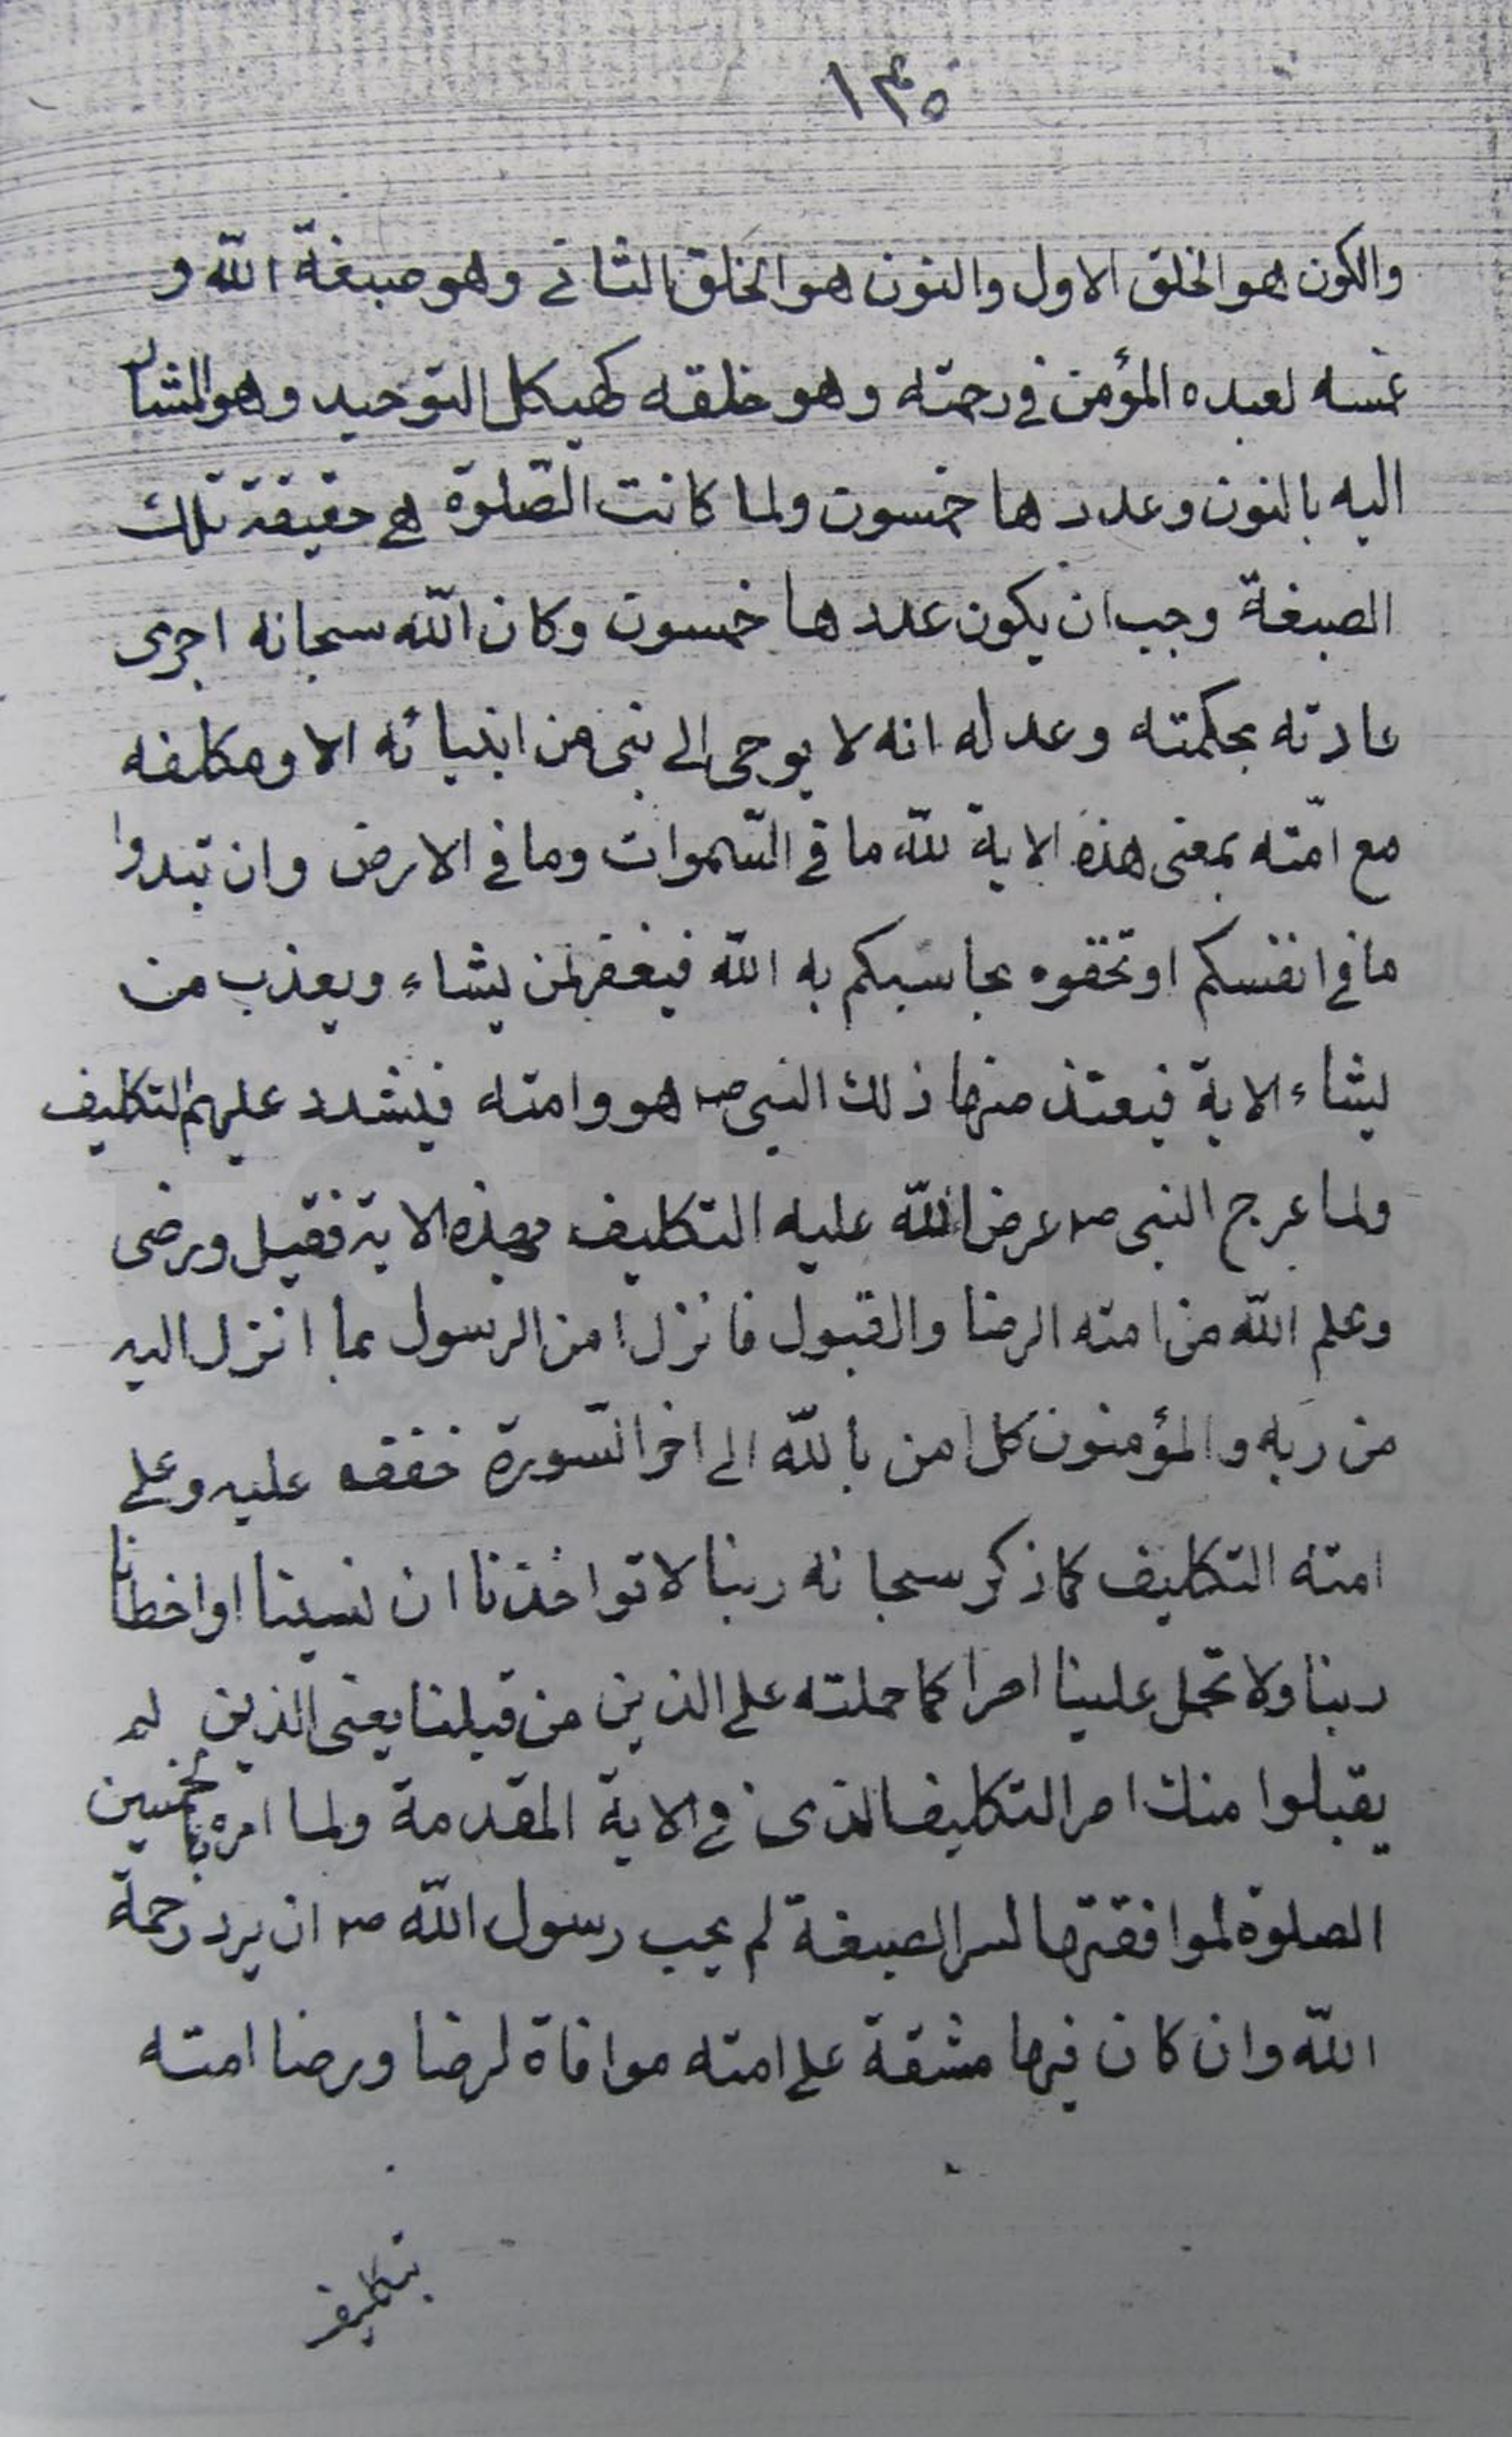 ١٣٥
والكون هو الخلق الاول والنون هو الخلق الثانى وهو صبغة الله و
غمسه لعبده المؤمن فى رحمته وهو خلقه كهيكل التوحيد وهو المشار
اليه بالنون وعددها خمسون ولما كانت الصّلوة هى حقيقة تلك
الصبغة وجب ان يكون عددها خمسون وكان الله سبحانه اجرى
عادته بحكمته وعدله انه لا يوحى الى نبى من انبيائه الا ومكلفه
مع امّته بمعنى هذه الاية لله ما فى السّموات وما فى الارض وان تبدوا
ما فى انفسكم او تخفوه يحاسبكم به الله فيغفر لمن يشاء ويعذب من
يشاء الاية فيعتذ منها ذلك النبى ص هو وامته فيشدد عليهم التكليف
ولما عرج النبى ص عرض الله عليه التكليف بهذه الاية فقبل ورضى
وعلم الله من امته الرضا والقبول فانزل امن الرسول بما انزل اليه
من ربه والمؤمنون كل امن بالله الى اخر السّورة خففه عليه وعلى
امته التكليف كما ذكر سبحانه ربنا لا تواخذنا ان نسينا او اخطانا
ربنا ولا تحمل علينا اصرا كما حملته على الذين من قبلنا يعنى الذين لم
يقبلوا منك امر التكليف الذى فى الاية المقدمة ولما امره بالخمسين
الصلوة لموافقتها لسر الصبغة لم يحب رسول الله ص ان يرد رحمة
الله وان كان فيها مشقة على امته موافاة لرضا ورضا امته
بتكليف